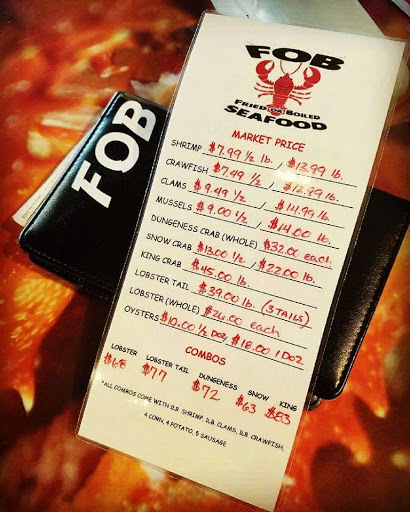 FOB
FOB
FRIED OR BOILED
SEAFOOD
MARKET PRICE
SHRIMP $7.99 1/2 lb. / $13.99 lb.
CRAWFISH $7.49 1/2 / $12.99 lb.
CLAMS $9.49 1/2 / $14.99 lb.
MUSSELS $9.00 1/2 / $14.00 lb.
DUNGENESS CRAB (WHOLE) $32.00 each
SNOW CRAB $13.00 1/2 / $22.00 lb.
KING CRAB $45.00 lb.
LOBSTER TAIL $39.00 lb. (3 TAILS)
LOBSTER (WHOLE) $26.00 each
OYSTERS $10.00 1/2 Doz / $18.00 1 Doz
COMBOS
LOBSTER LOBSTER TAIL DUNGENESS SNOW KING
$68 $77 $72 $63 $83
*ALL COMBOS COME WITH 1LB. SHRIMP, 1LB. CLAMS, 1LB. CRAWFISH,
4 CORN, 4 POTATO, 5 SAUSAGE